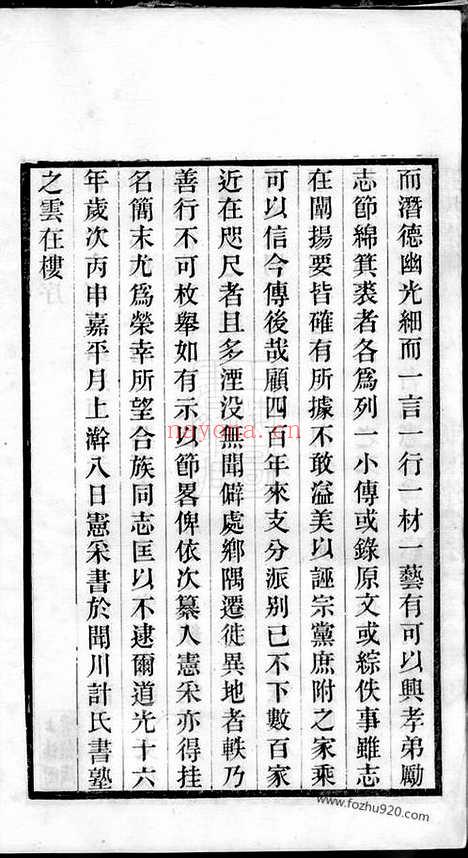 而潛德幽光細而一言一行一材一藝有可以興孝弟勵
志節綿箕裘者各爲列一小傳或錄原文或綜佚事雖志
在闡揚要皆確有所據不敢溢美以誣宗黨庶附之家乘
可以信今傳後哉顧四百年來支分派別已不下數百家
近在咫尺者且多湮没無聞僻處鄉隅遷徙異地者軼乃
善行不可枚舉如有示以節畧俾依次纂入憲采亦得挂
名簡末尤爲榮幸所望合族同志匡以不逮爾道光十六
年歲次丙申嘉平月上澣八日憲采書於聞川計氏書塾
之雲在樓
nayona.cn
www.fozhu920.com